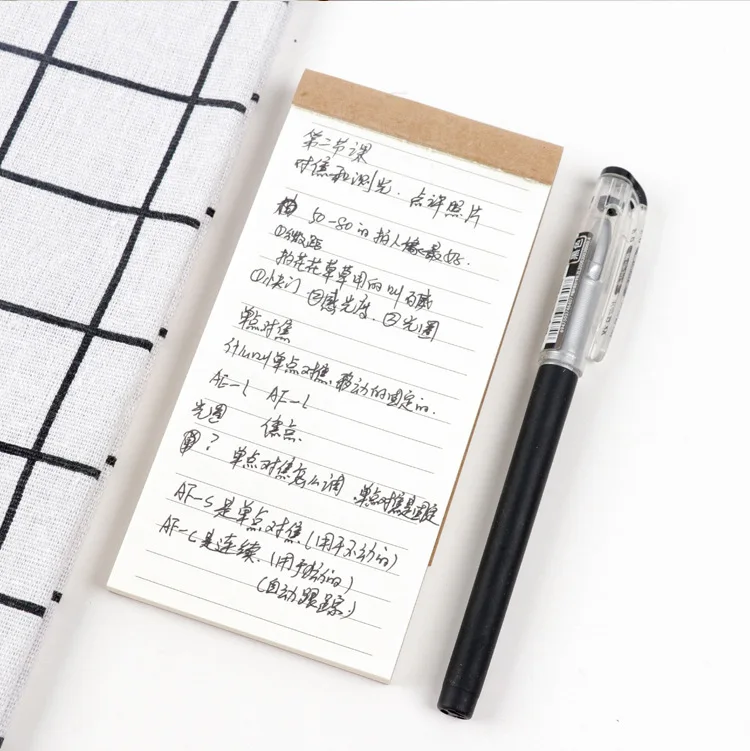 第二节课
对焦和测光.点评照片
拍 50-80的拍人像最好.
①微距
拍花花草草用的叫百威
①快门 ②感光度.③光圈
单点对焦
什么叫单点对焦.移动的固定的.
AE-L AF-L
光圈 焦点.
? 单点对焦怎么调.单点对焦是固定
AF-S是单点对焦.(用于不动的)
AF-C是连续.(用于动的)
(自动跟踪.)
黑色